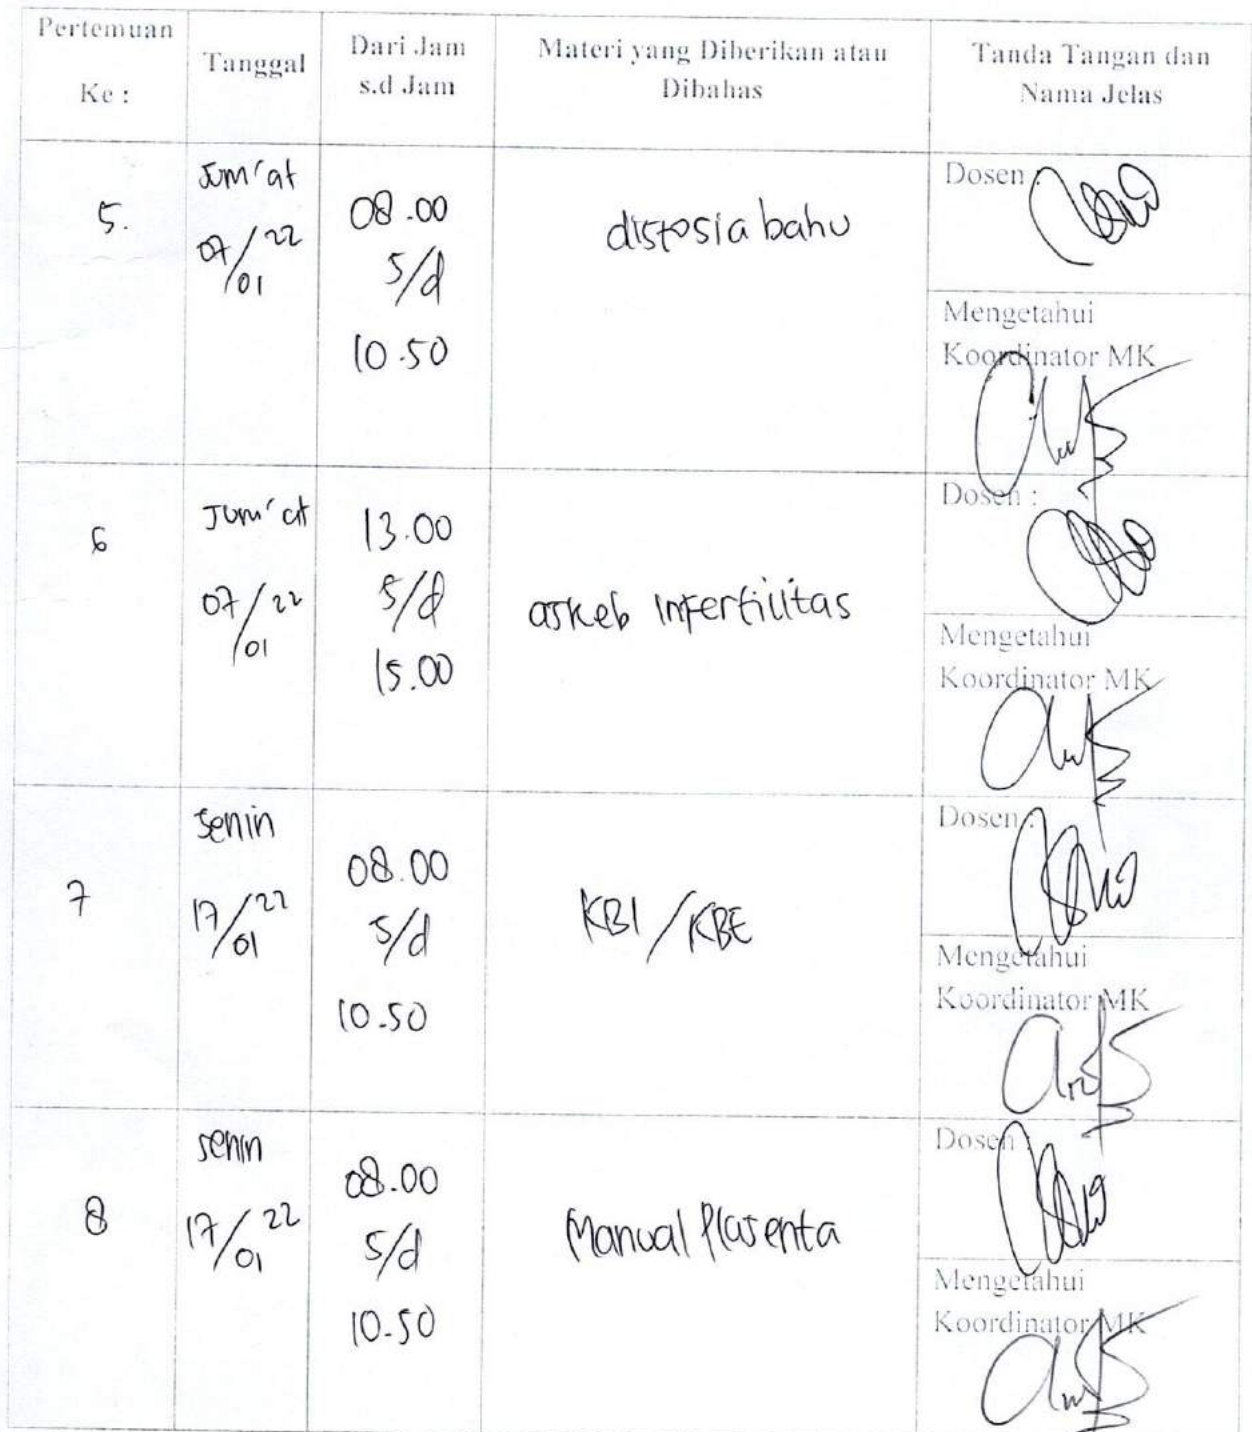 Pertemuan
Ke :
Tanggal
Dari Jam
s.d Jam
Materi yang Diberikan atau
Dibahas
Tanda Tangan dan
Nama Jelas
5.
Jum'at
07/01 22
08.00
s/d
10.50
distosia bahu
Dosen :
Mengetahui
Koordinator MK
6
Jum'at
07/01 22
13.00
s/d
15.00
askeb infertilitas
Dosen :
Mengetahui
Koordinator MK
7
Senin
17/01 22
08.00
s/d
10.50
KBI/KBE
Dosen :
Mengetahui
Koordinator MK
8
senin
17/01 22
08.00
s/d
10.50
Manual Plasenta
Dosen :
Mengetahui
Koordinator MK